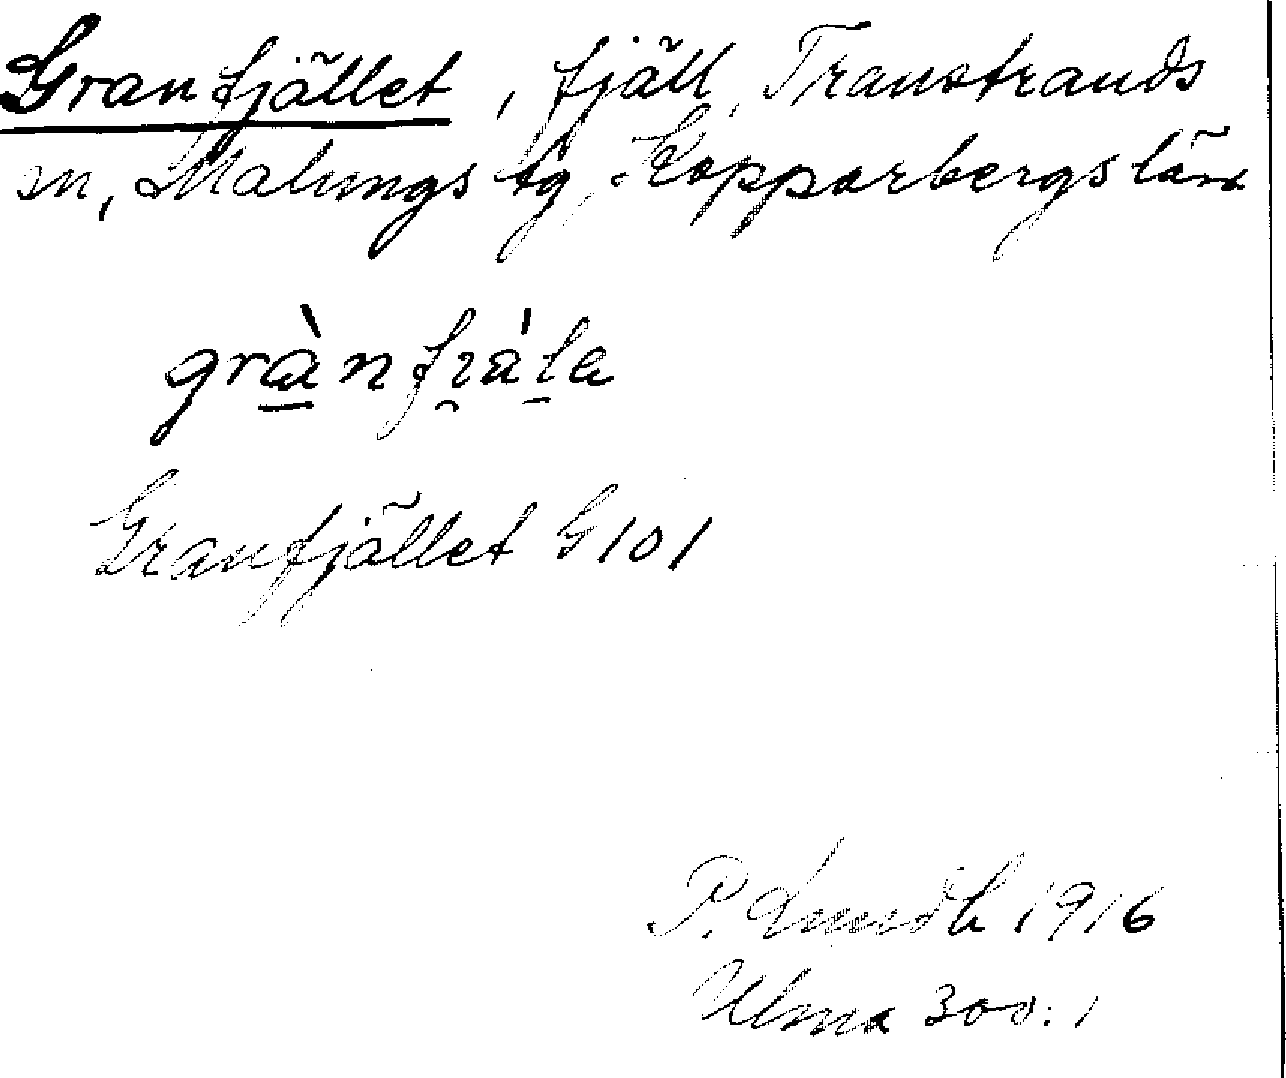 Granfjället, fjäll, Transtrands
sn, Malungs tg, Kopparbergs län
Granfjället G 101
P. Lundh 1916
Ulma 300:1